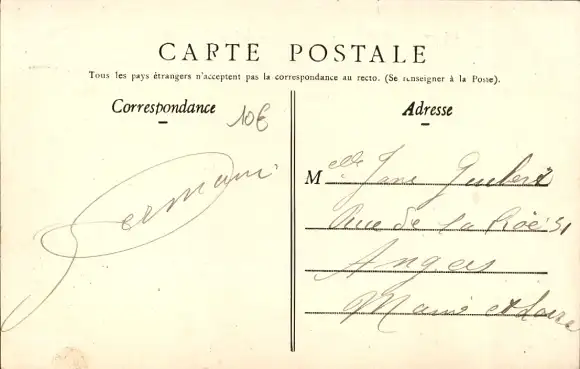 CARTE POSTALE
Tous les pays étrangers n'acceptent pas la correspondance au recto. (Se renseigner à la Poste).
Correspondance
10€
Adresse
Germain
Melle Jane
Rue de la Roë 51
Angers
Maine et Loire